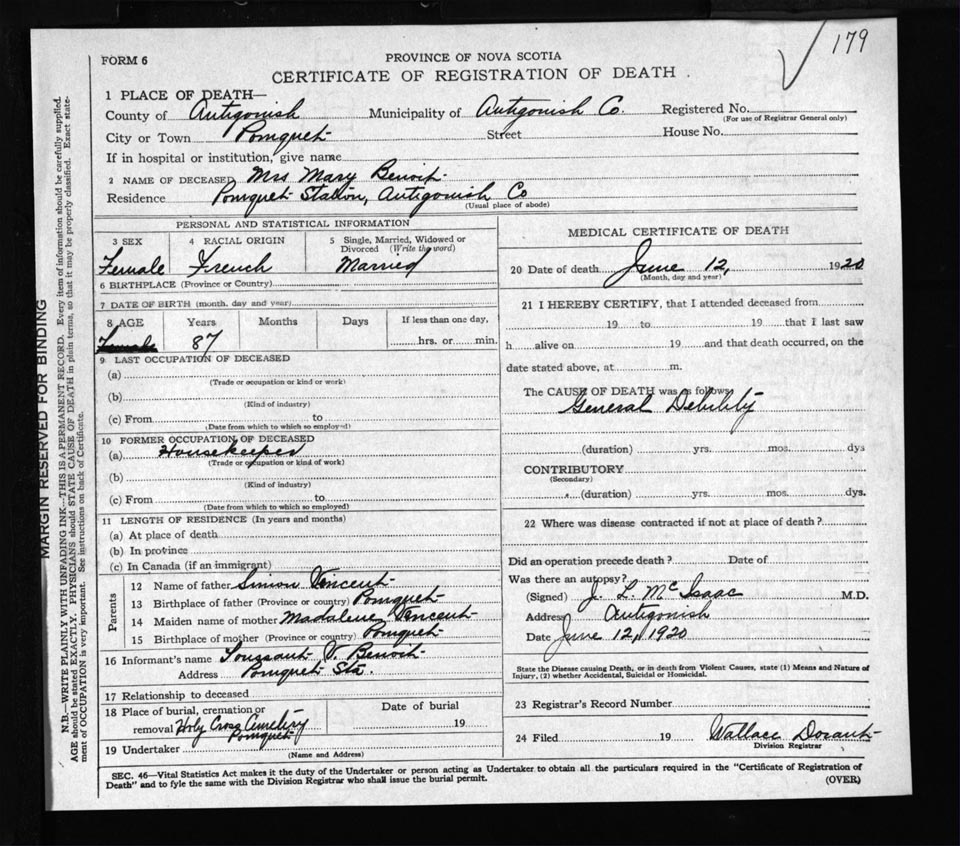 179
FORM 6
PROVINCE OF NOVA SCOTIA
CERTIFICATE OF REGISTRATION OF DEATH
1 PLACE OF DEATH—
County of Antigonish Municipality of Antigonish Co. Registered No.
(For use of Registrar General only)
City or Town Pomquet Street House No.
If in hospital or institution, give name
2 NAME OF DECEASED Mrs Mary Benoit
Residence Pomquet Station, Antigonish Co
(Usual place of abode)
PERSONAL AND STATISTICAL INFORMATION
3 SEX 4 RACIAL ORIGIN 5 Single, Married, Widowed or Divorced (Write the word)
Female French Married
6 BIRTHPLACE (Province or Country)
7 DATE OF BIRTH (month, day and year)
8 AGE Years Months Days If less than one day,
Female 87 hrs. or min.
9 LAST OCCUPATION OF DECEASED
(a)
(Trade or occupation or kind or work)
(b)
(Kind of industry)
(c) From to
(Date from which to which so employed)
10 FORMER OCCUPATION OF DECEASED
(a) Housekeeper
(Trade or occupation or kind of work)
(b)
(Kind of industry)
(c) From to
(Date from which to which so employed)
11 LENGTH OF RESIDENCE (In years and months)
(a) At place of death
(b) In province
(c) In Canada (if an immigrant)
Parents
12 Name of father Simon Vincent
13 Birthplace of father (Province or country) Pomquet
14 Maiden name of mother Madalene Vincent
15 Birthplace of mother (Province or country) Pomquet
16 Informant's name Toussaint V. Benoit
Address Pomquet Sta.
17 Relationship to deceased
18 Place of burial, cremation or Date of burial
removal Holy Cross Cemetery 19
Pomquet
19 Undertaker
(Name and Address)
MEDICAL CERTIFICATE OF DEATH
20 Date of death June 12, 1920
(Month, day and year)
21 I HEREBY CERTIFY, that I attended deceased from
19 to 19 that I last saw
h alive on 19 and that death occurred, on the
date stated above, at m.
The CAUSE OF DEATH was as follows
General Debility
(duration) yrs. mos. dys
CONTRIBUTORY
(Secondary)
(duration) yrs. mos. dys.
22 Where was disease contracted if not at place of death?
Did an operation precede death? Date of
Was there an autopsy?
(Signed) J. L. McIsaac M.D.
Address Antigonish
Date June 12, 1920
State the Disease causing Death, or in death from Violent Causes, state (1) Means and Nature of
Injury, (2) whether Accidental, Suicidal or Homicidal.
23 Registrar's Record Number
24 Filed 19 Wallace Dorant
Division Registrar
SEC. 46—Vital Statistics Act makes it the duty of the Undertaker or person acting as Undertaker to obtain all the particulars required in the "Certificate of Registration of
Death" and to fyle the same with the Division Registrar who shall issue the burial permit. (OVER)
MARGIN RESERVED FOR BINDING
N.B.—WRITE PLAINLY WITH UNFADING INK—THIS IS A PERMANENT RECORD. Every item of information should be carefully supplied.
AGE should be stated EXACTLY. PHYSICIANS should STATE CAUSE OF DEATH in plain terms, so that it may be properly classified. Exact state-
ment of OCCUPATION is very important. See instructions on back of Certificate.